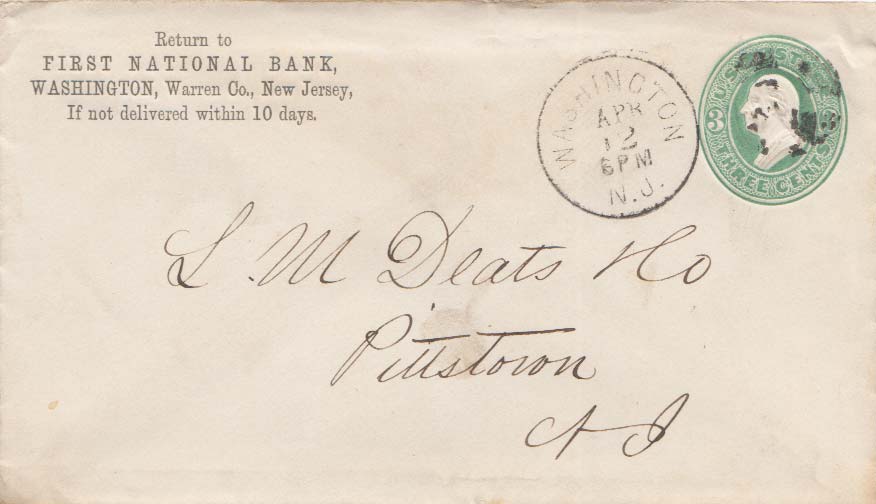 Return to
FIRST NATIONAL BANK,
WASHINGTON, Warren Co., New Jersey,
If not delivered within 10 days.
WASHINGTON
APR
12
6 PM
N.J.
U.S. POSTAGE
3 3
THREE CENTS
L. M Deats & Co
Pittstown
N J